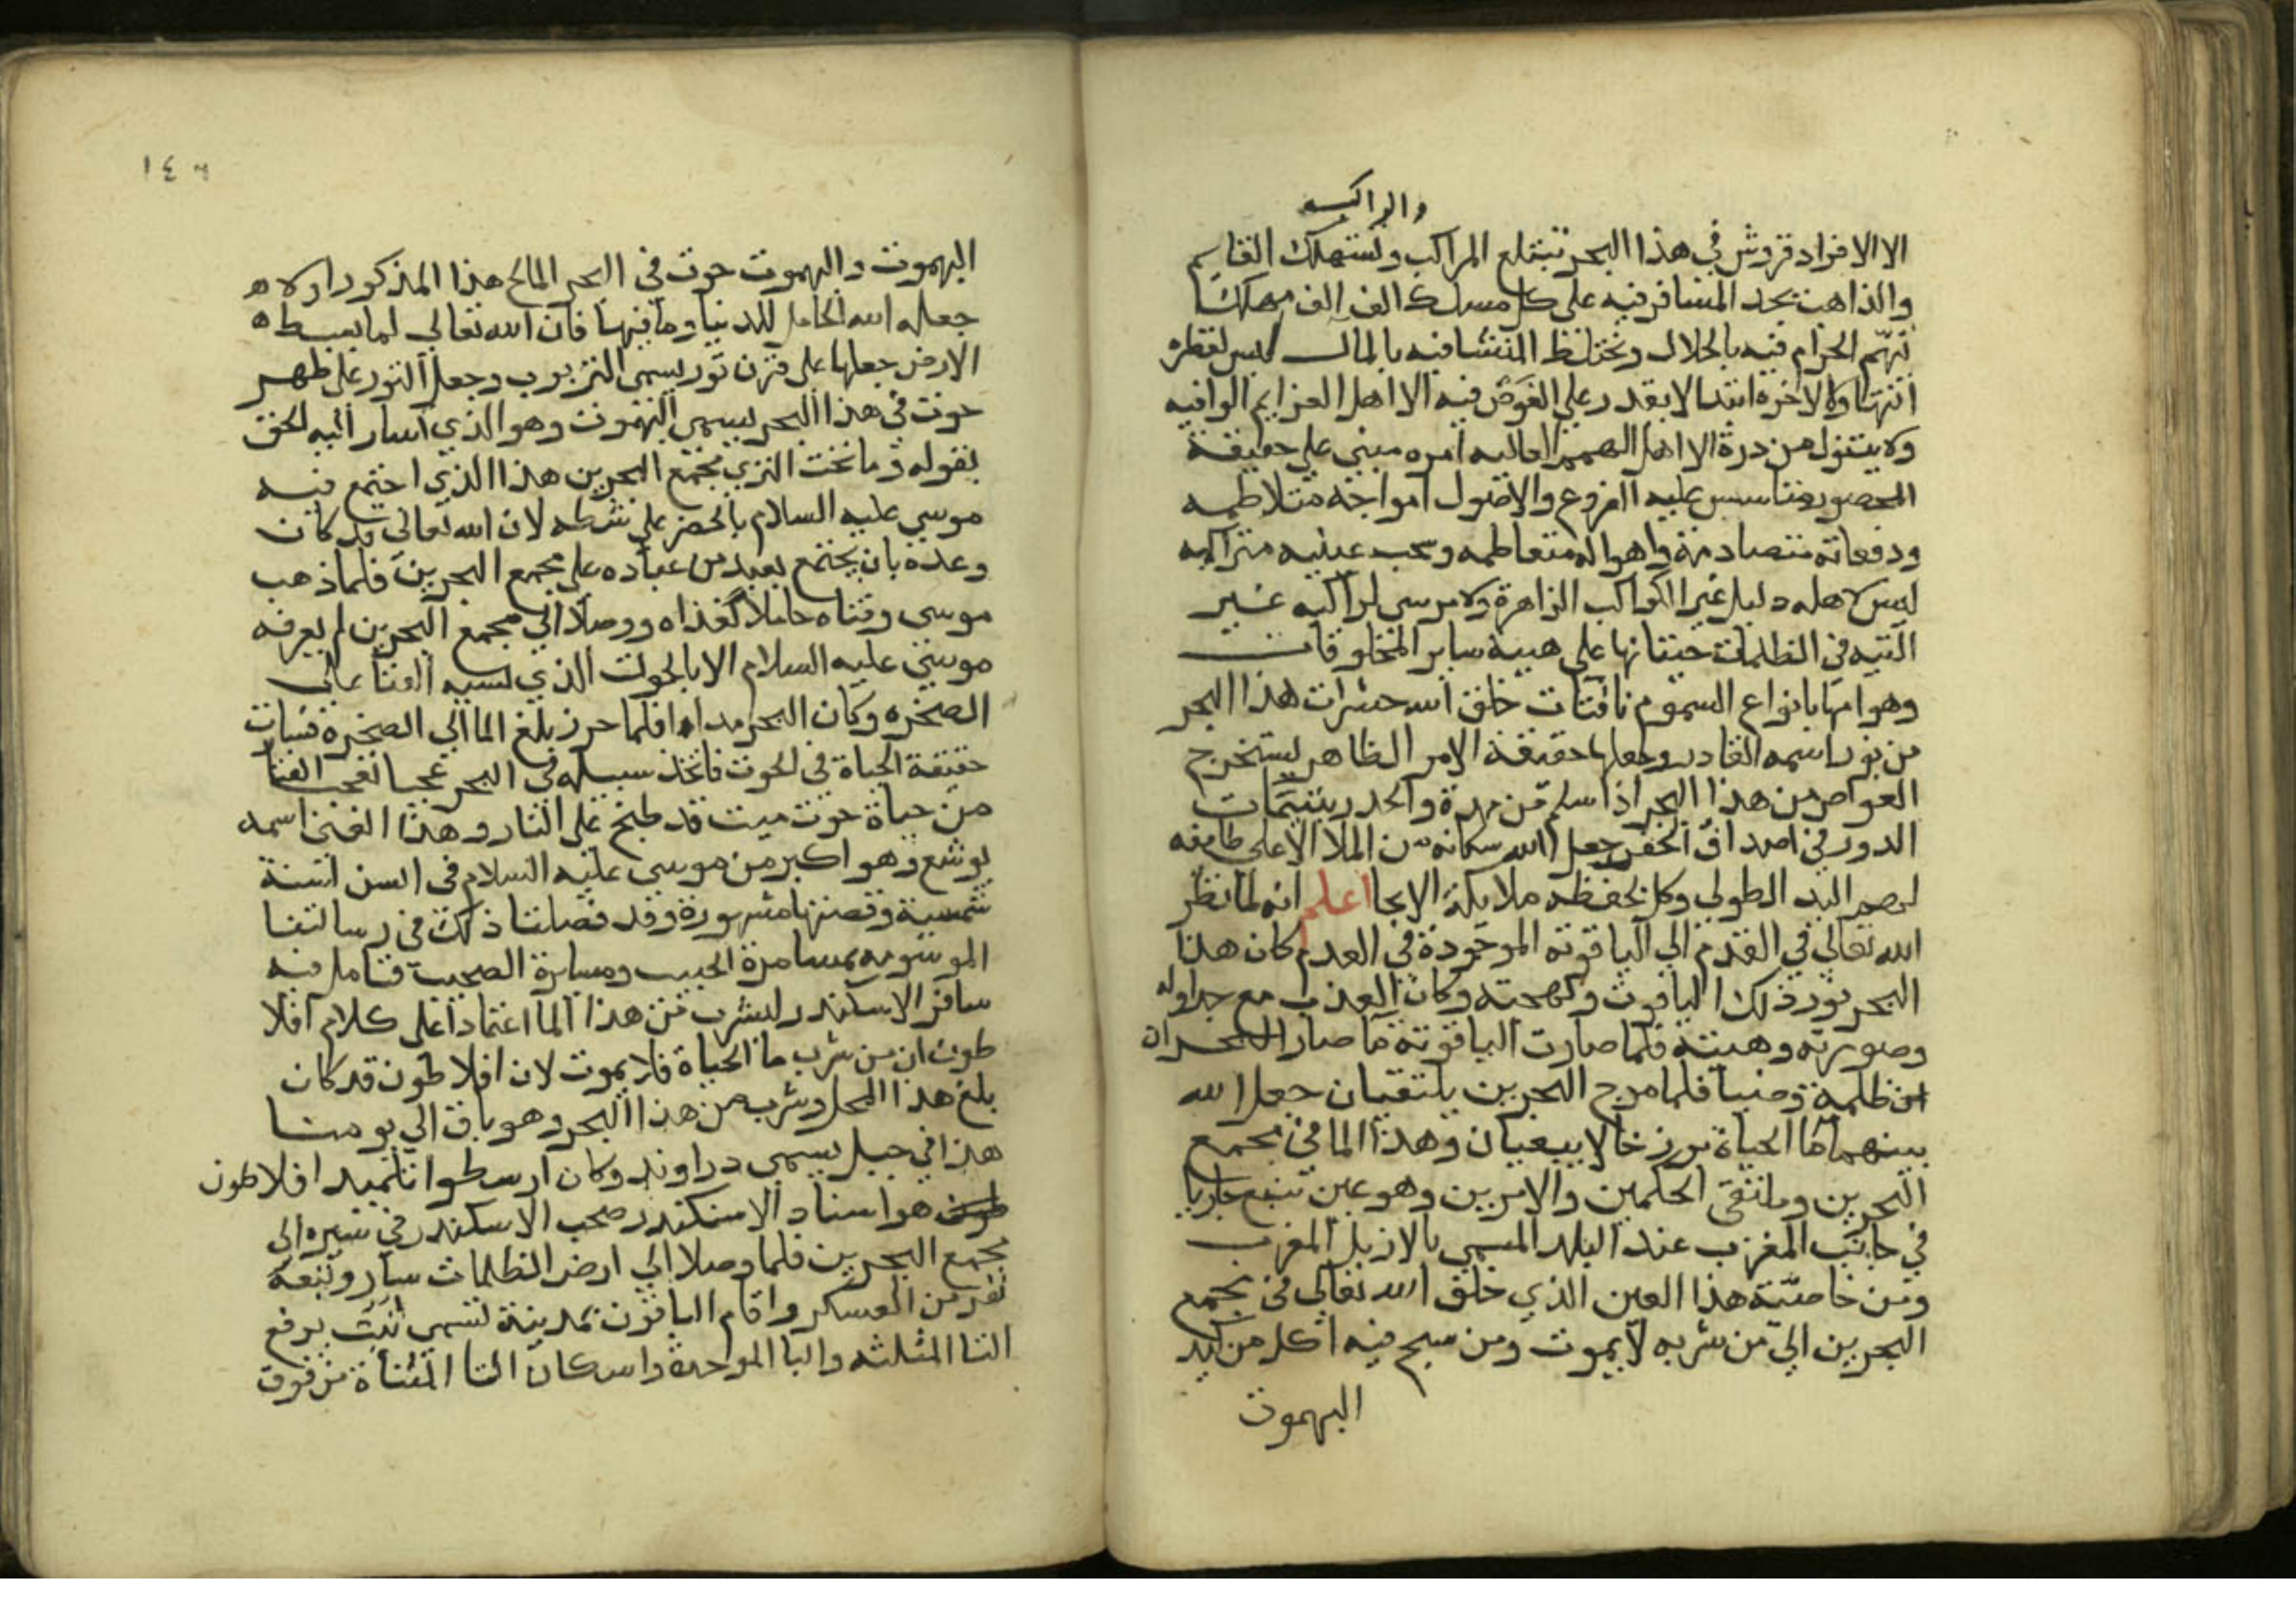 والراكب
الا الافراد قروش في هذا البحر تبتلع المراكب وتستهلك القايم
والذاهب يجد المسافر فيه على كل مسلك الف الف مهلكا
الحرام فيه بالحلال ويختلط المنشا فيه بالمال ليس لقطره
انتها ولا لاخره ابتدا لا يقدر على الغوص فيه الا اهل العزايم الوافيه
ولا يتناول من درة الا اهل الهمم العاليه امره مبني على حقيقة
المحصور متاسس عليه الفروع والاصول امواجه متلاطمه
ودفعاته متصادمة واهواله متعاظمه وسحب غيثيه متراكمه
ليس لاهله دليل غير الكواكب الزاهرة ولا مرسى لراكبه غير
التيه في الظلمات حيتانها على هيية ساير المخلوقات
وهوامها بانواع السموم نافثات خلق الله حشرات هذا البحر
من نور اسمه القادر وجعلها حقيقة الامر الظاهر يستخرج
الغواص من هذا البحر اذا سلم من مده والجدر يتيمات
الدور في اصداف الخفر جعل الله سكانه من الملا الاعلى طايفه
لهم اليد الطولى وكل بحفظه ملايكة الايحا اعلم انه لما نظر
الله تعالى في القدم الى الياقوته الموجودة في العدم كان هذا
البحر نور ذلك الياقوت وبهجته وكان العذب مع جداوله
وصورته وهيته فلما صارت الياقوتة ما صار البحران
من ظلمة وضيا فلما مرج البحرين يلتقيان جعل الله
بينهما ما الحياة برزخا لا يبغيان وهذا الما في مجمع
البحرين وملتقى الحكمين والامرين وهو عين تنبع جاريا
في جانب المغرب عند البلد المسمى بالازيل المغرب
ومن خاصية هذا العين الذي خلق الله تعالى في مجمع
البحرين الي من شربه لا يموت ومن سبح فيه اكل من كبد
البهموت
١٤٦
البهموت والبهموت حوت في البحر المالح هذا المذكور اولا ه
جعله الله الحامل للدنيا وما فيها فان الله تعالى لما بسط ه
الارض جعلها على قرن ثور يسمى البربوب وجعل الثور على ظهر
حوت في هذا البحر يسمى البهموت وهو الذي اشار اليه الحق
بقوله وما تحت الثري مجمع البحرين هذا الذي اجتمع فيه
موسي عليه السلام بالخضر على شطه لان الله تعالى قد كان
وعده بان يجتمع بعبد من عباده على مجمع البحرين فلما ذهب
موسى وفتاه حاملا لغذاه ووصلا الى مجمع البحرين لم يعرفه
موسي عليه السلام الا بالحوت الذي نسيه الفتا على
الصخره وكان البحر مدا فلما حرز بلغ الما الى الصخرة فسات
حقيقة الحياة في الحوت فاتخذ سبيله في البحر عجبا فعجب الفتا
من حياة حوت ميت قد طبخ على النار وهذا الفتى اسمه
يوشع وهو اكبر من موسي عليه السلام في السن بسنة
شمسية وقصتهما مشهورة وقد فصلنا ذلك في رسالتنا
الموسومه بمسامرة الحبيب ومسايرة الصحيب فتامل فيه
سافر الاسكندر ليشرب من هذا الما اعتمادا على كلام افلا
طون ان من شرب ما الحياة فلا يموت لان افلاطون قد كان
بلغ هذا المحل وشرب من هذا البحر وهو باق الى يومنا
هذا في جبل يسمى دراوند وكان ارسطوا تلميد افلاطون
هو استاد الاسكندر صحب الاسكندر في سيره الى
مجمع البحرين فلما وصلا الى ارض الظلمات سار وتبعه
نفر من العسكر واقام الباقون بمدينة تسمى ثبت برفع
الثا المثلثه والبا الموحدة واسكان التا المثناة من فوق